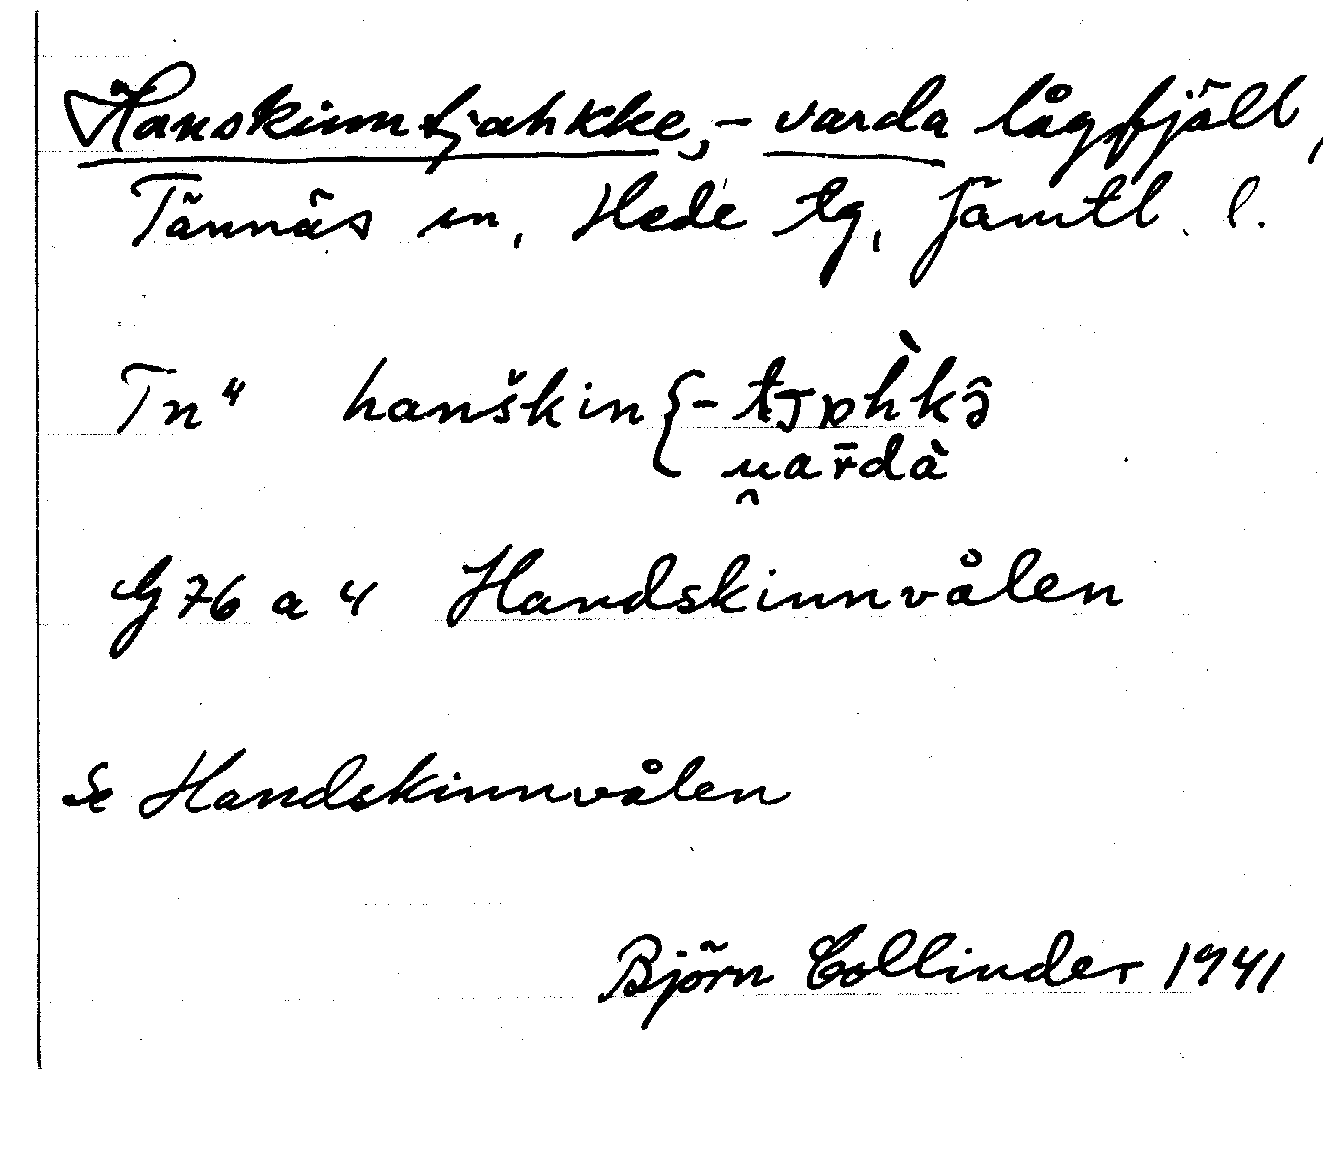 Hanskinntjahkke, -varda lågfjäll,
Tännäs sn, Hede tg, Jämtl. l.
Tn 4 hanškin {-
u̯ar̄dà
G 76 a 4 Handskinnvålen
Se Handskinnvålen
Björn Collinder 1941